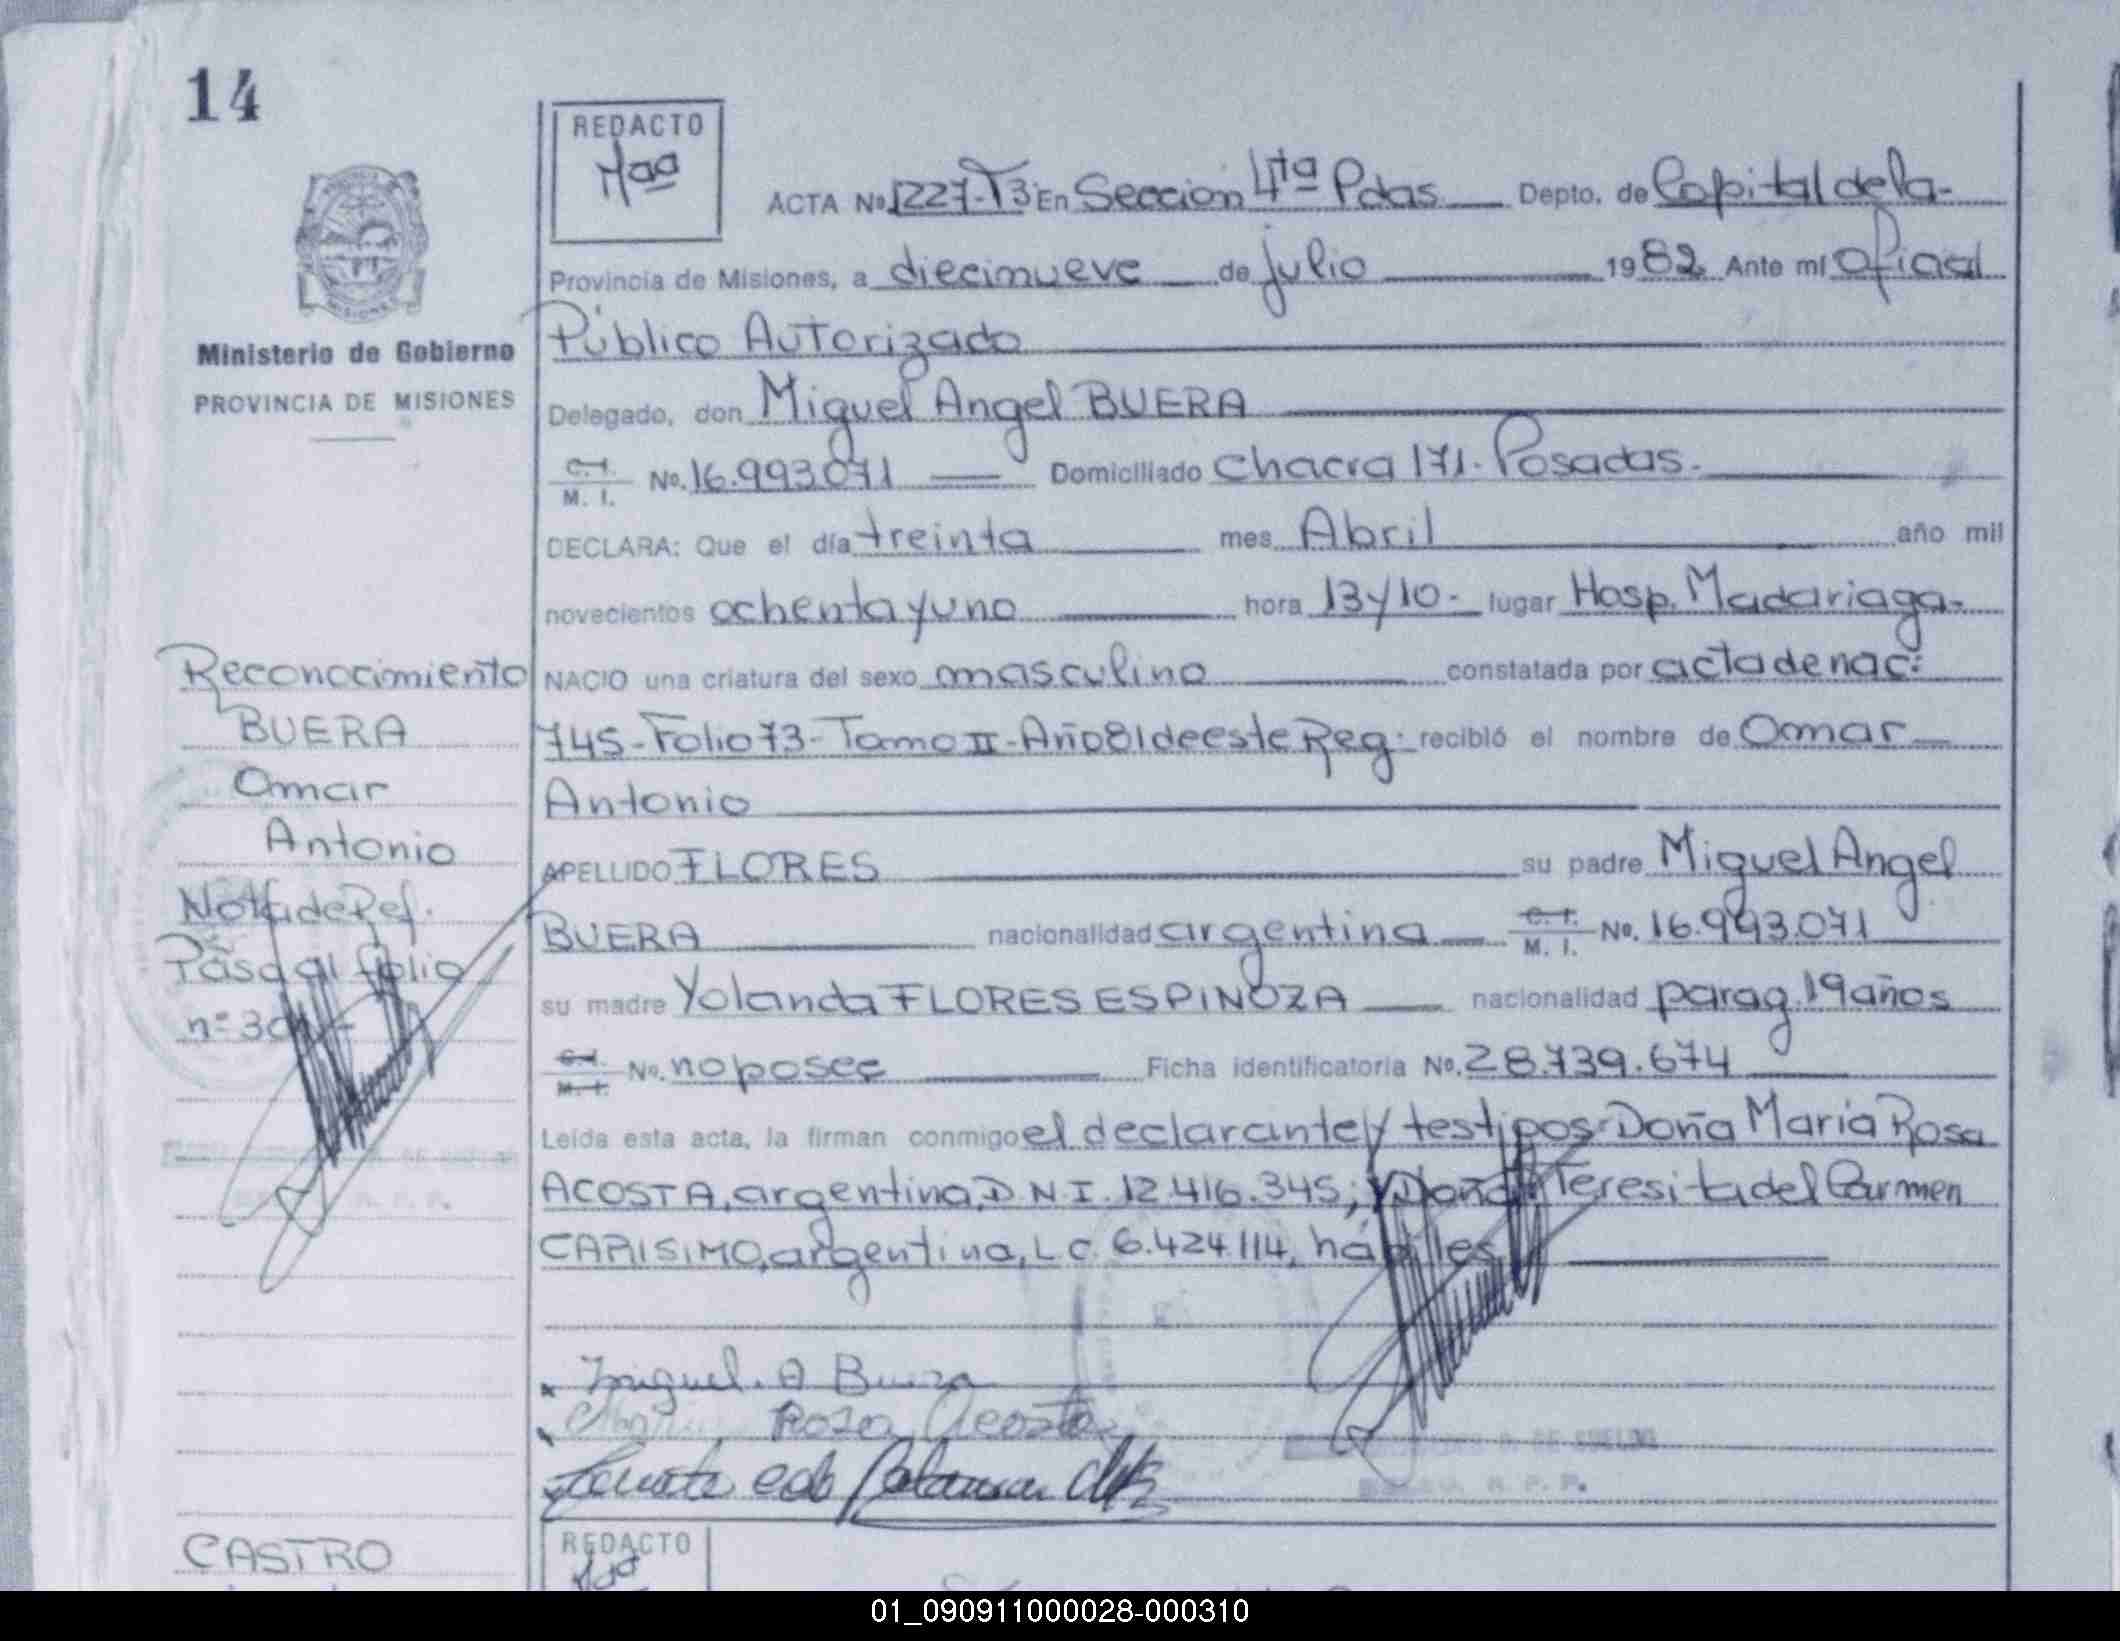 14
REDACTO
ACTA No. 1227-T3 En Sección 4ta Pdas. Depto. de Capital de la-
Provincia de Misiones, a diecinueve de julio 1982 Ante mí Oficial
Público Autorizado
Ministerio de Gobierno
PROVINCIA DE MISIONES
Delegado, don Miguel Angel BUERA
C.I. M. I. No. 16.993.071 Domiciliado Chacra 171. Posadas.
DECLARA: Que el día treinta mes Abril año mil
novecientos ochenta y uno hora 13 y 10.- lugar Hosp. Madariaga-
NACIO una criatura del sexo masculino constatada por acta de nac:
745-Folio 73-Tomo II-Año 81 de este Reg. recibió el nombre de Omar
Antonio
APELLIDO FLORES su padre Miguel Angel
BUERA nacionalidad argentina C. I. M. I. No. 16.993.071
su madre Yolanda FLORES ESPINOZA nacionalidad parag. 19 años
C.I. M. I. No. no posee Ficha identificatoria No. 28.739.674
Leída esta acta, la firman conmigo el declarante y testigos Doña María Rosa
ACOSTA, argentina, D.N.I. 12.416.345; y Doña Teresita del Carmen
CARISIMO, argentina, L C. 6.424.114, hábiles
Reconocimiento
BUERA
Omar
Antonio
Nota de Ref.
Pasa al folio
Miguel. A Buera
Rosa Acosta
CASTRO
REDACTO
01_090911000028-000310